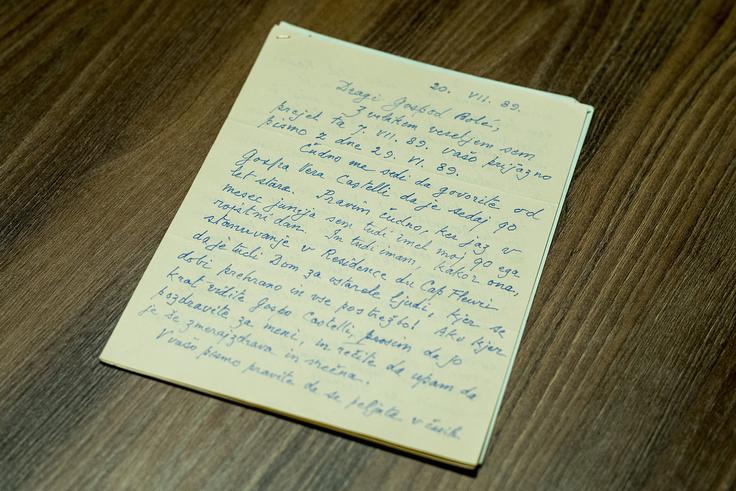 20. VII. 89.
Dragi Gospod Bolé,
Z velikem veseljem sem
prejel ta 7. VII. 89. vašo prijazno
pismo z dne 29. VI. 89.
Čudno me sedi da govorite od
Gospa Vera Castelli da je sedaj 90
let stara. Pravim čudno, ker jaz v
mesec junija sem tudi imel moj 90 ega
rojstni dan. In tudi imam, kakor ona,
stanuvanje v Residence du Cap Fleuri
da je tudi Dom za ostarele ljudi, kjer se
dobi prehrano in vse postrežbo! Ako kjer
krat vidite Gospo Castelli, prosim da jo
pozdravite za meni, in rečite da upam da
je še zmeraj zdrava in srečna.
V vašo pismo pravite da se peljate v časih